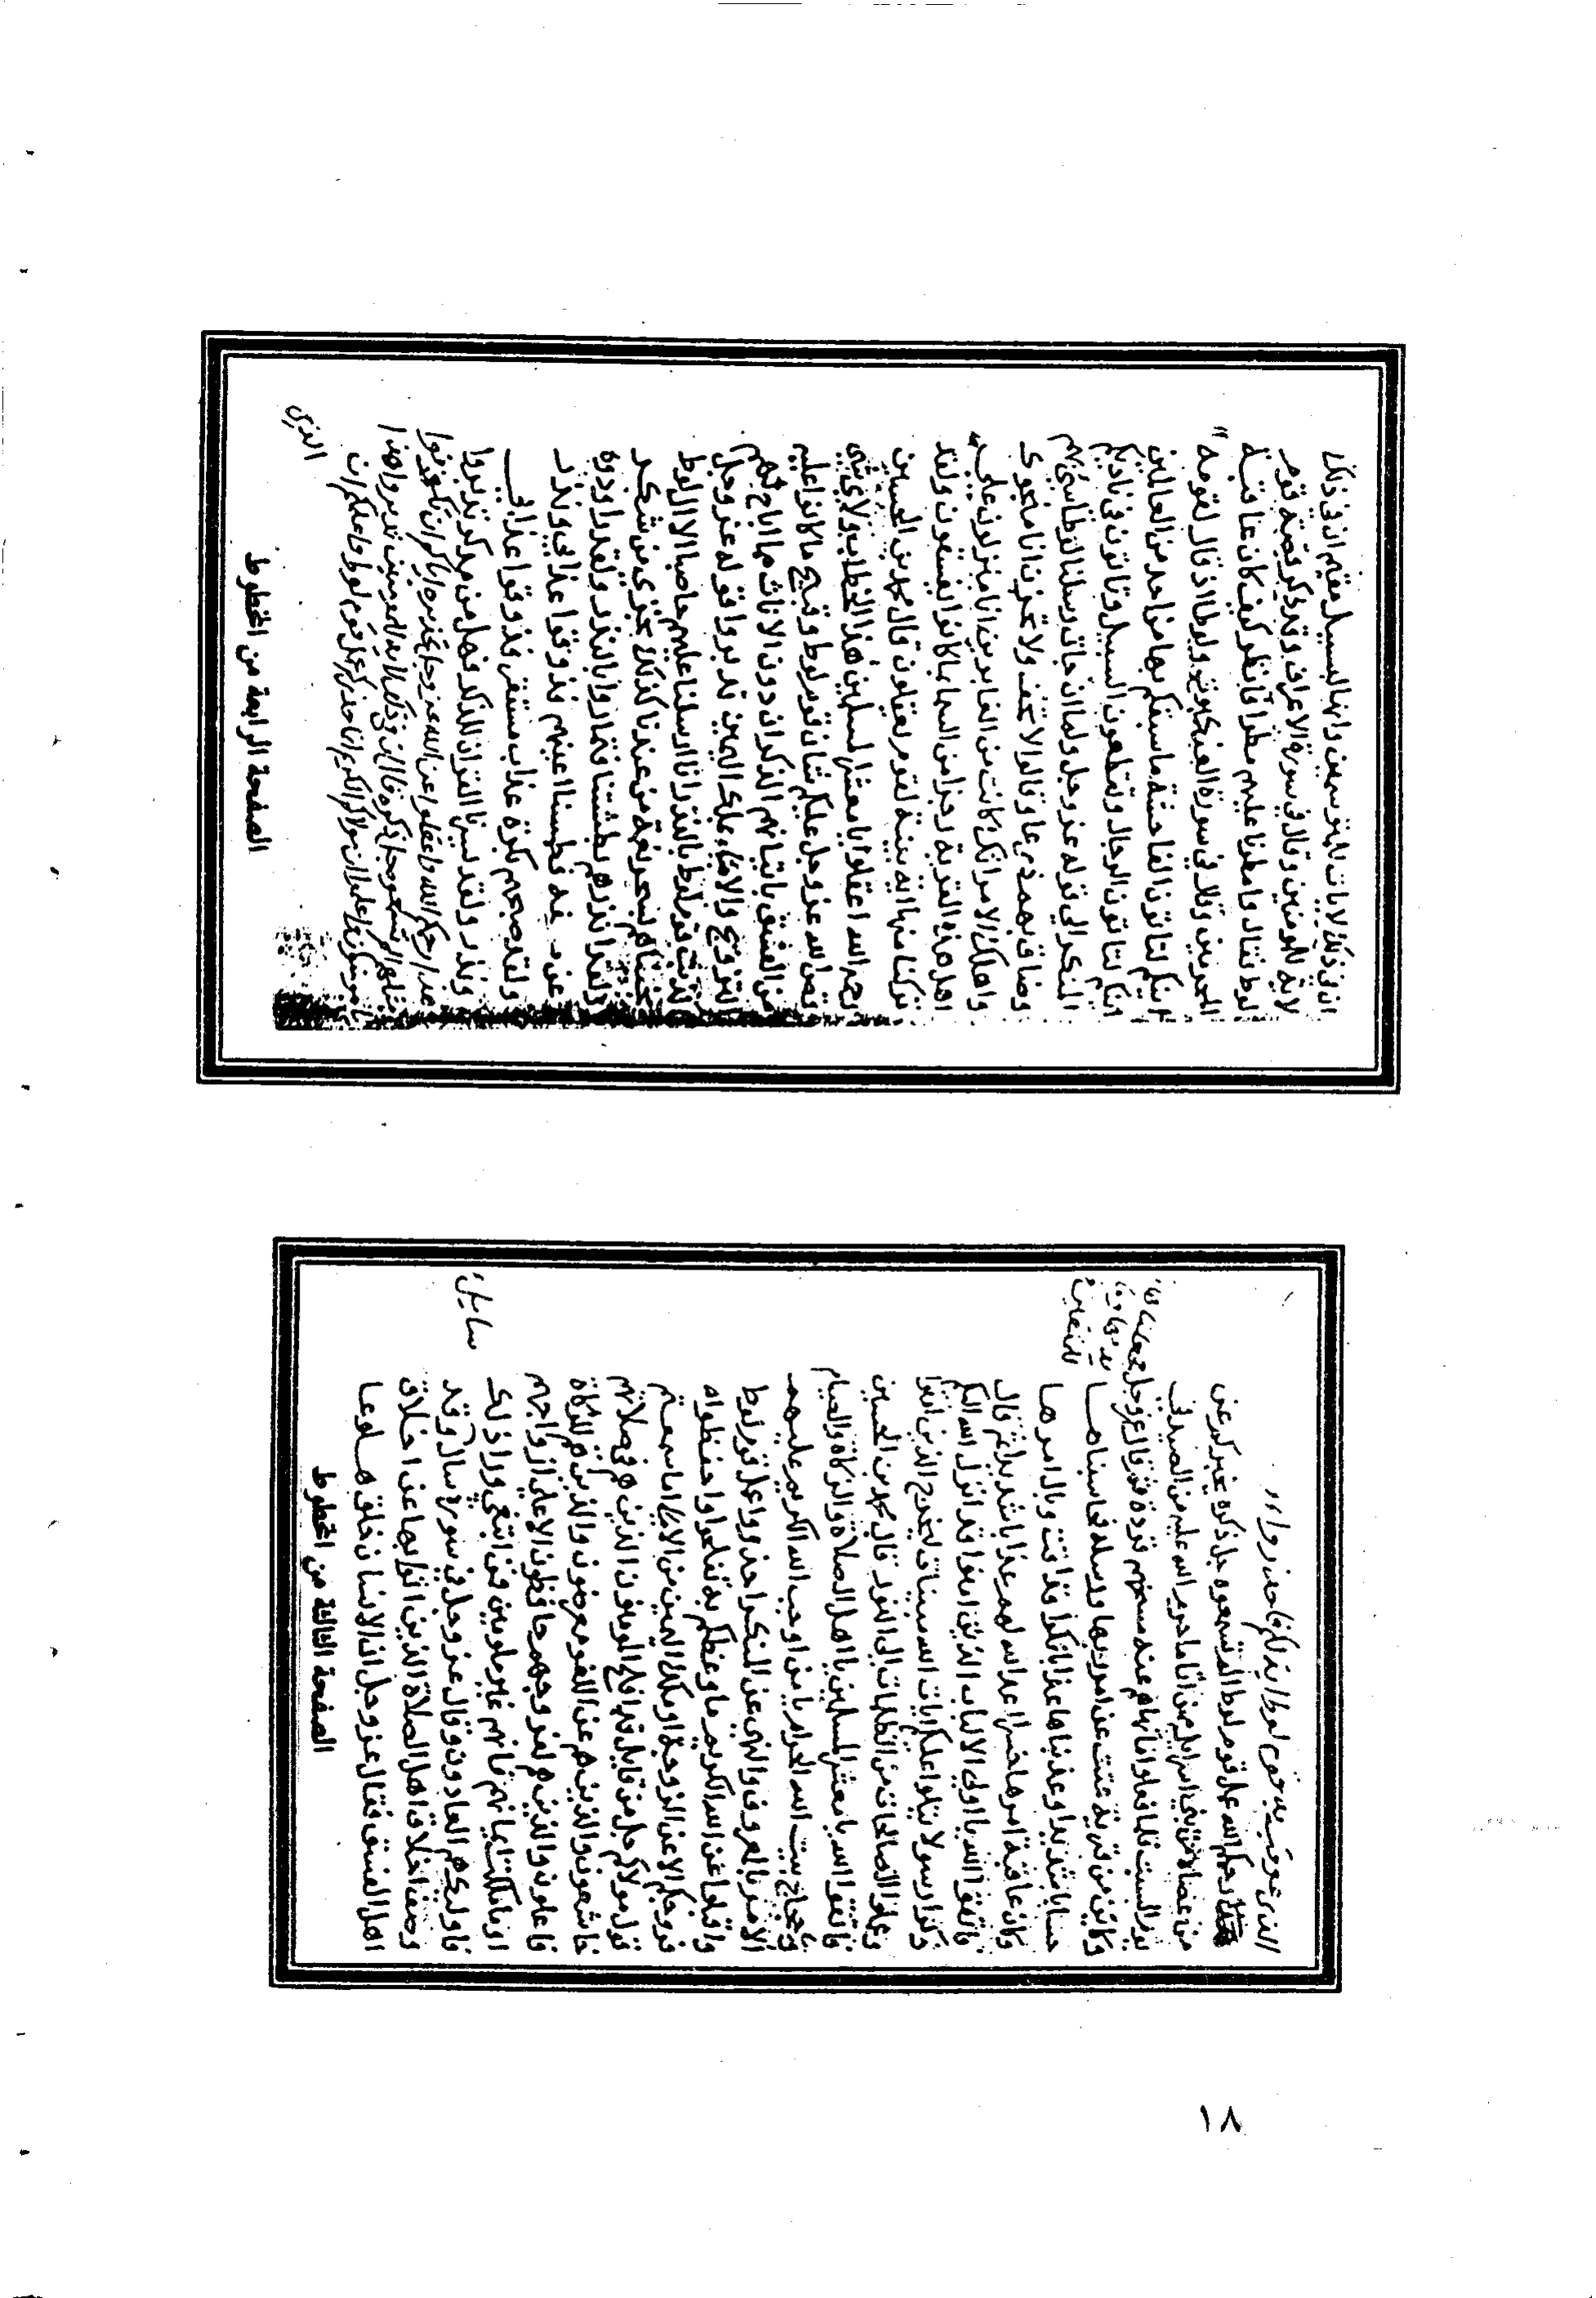 الذي عوقب به قوم لوط فاحذروا
رحمكم الله عمل قوم لوط الم تسمعوه جل ذكره يخبركم عن
من عصا من بني اسرايل من اتا ما حرم الله عليهم من الصيد في
يوم السبت فلما فعلوا ما نهاهم عنه مسخهم قردة ثم قال عز وجل فجعلناها
للمتقين
وكاين من قرية عتت عن امر ربها ورسله فحاسبناها
حسابا شديدا وعذبناها عذابا نكرا فذاقت وبال امرها
وكان عاقبة امرها خسرا اعد الله لهم عذابا شديدا ثم قال
فاتقوا الله يا اولي الالباب الذين امنوا قد انزل الله اليكم
ذكرا رسولا يتلوا عليكم ايات الله مبينات ليخرج الذين امنوا
وعملوا الصالحات من الظلمات الى النور قال محمد بن الحسين
فاتقوا الله يا معشر المسلمين يا اهل الصلاة والزكاة والصيام
وحجاج بيت الله الحرام يا من اوجب الله الكريم عليهم
الامر بالمعروف والنهي عن المنكر احذروا عمل قوم لوط
واقبلوا عن الله الكريم ما وعظكم به تفلحوا واحفظوا
فروجكم الا عن الزوجة او ملك اليمين من الاماء اما سمعتم
قول مولاكم جل من قايل قد افلح المومنون الذين هم في صلاتهم
خاشعون والذين هم عن اللغو معرضون والذين هم للزكاة
فاعلون والذين هم لفروجهم حافظون الا على ازواجهم
او ما ملكت ايمانهم فانهم غير ملومين فمن ابتغى وراء ذلك
فاوليك هم العادون وقال عز وجل في سورة سال وقد
سايل
وصف اخلاق اهل الصلاة الذين بها عن اخلاق
اهل الفسق فقال عز وجل ان الانسان خلق هلوعا
الصفحة الثالثة من المخطوط
ان في ذلك لايات للمتوسمين وانها لبسبيل مقيم ان في ذلك
لاية للمومنين وقال في سورة الاعراف وقد ذكر قصة قوم
لوط فقال وامطرنا عليهم مطرا فانظر كيف كان عاقبة
المجرمين وقال في سورة العنكبوت ولوطا اذ قال لقومه
اينكم لتاتون الفاحشة ما سبقكم بها من احد من العالمين
اينكم لتاتون الرجال وتقطعون السبيل وتاتون في ناديكم
المنكر الى قوله عز وجل ولما ان جات رسلنا لوطا سيء بهم
وضاق بهم ذرعا وقالوا لا تخف ولا تحزن انا منجوك
واهلك الا امراتك كانت من الغابرين انا منزلون على
اهل هذه القرية رجزا من السما بما كانوا يفسقون ولقد
تركنا منها اية بينة لقوم يعقلون قال محمد بن الحسين
رحمه الله اعقلوا يا معشر المسلمين هذا الخطاب ولاي شي
قص الله عز وجل عليكم شان قوم لوط وقبيح ما كانوا عليه
من الفسق باتيانهم الذكران دون الاناث مما اباح لهم
التزويج والاماء ملك اليمين تدبروا قوله عز وجل
كذبت قوم لوط بالنذر انا ارسلنا عليهم حاصبا الا ال لوط
نجيناهم بسحر نعمة من عندنا كذلك نجزي من شكر
ولقد انذرهم بطشتنا فتماروا بالنذر ولقد راودوه
عن ضيفه فطمسنا اعينهم فذوقوا عذابي ونذر
ولقد صبحهم بكرة عذاب مستقر فذوقوا عذابي
ونذر ولقد يسرنا القران للذكر فهل من مدكر تدبروا
هذا رحمكم الله واعقلوا عن الله عز وجل تحذيره اياكم ان تكونوا
مثلهم
الذي
الصفحة الرابعة من المخطوط
١٨